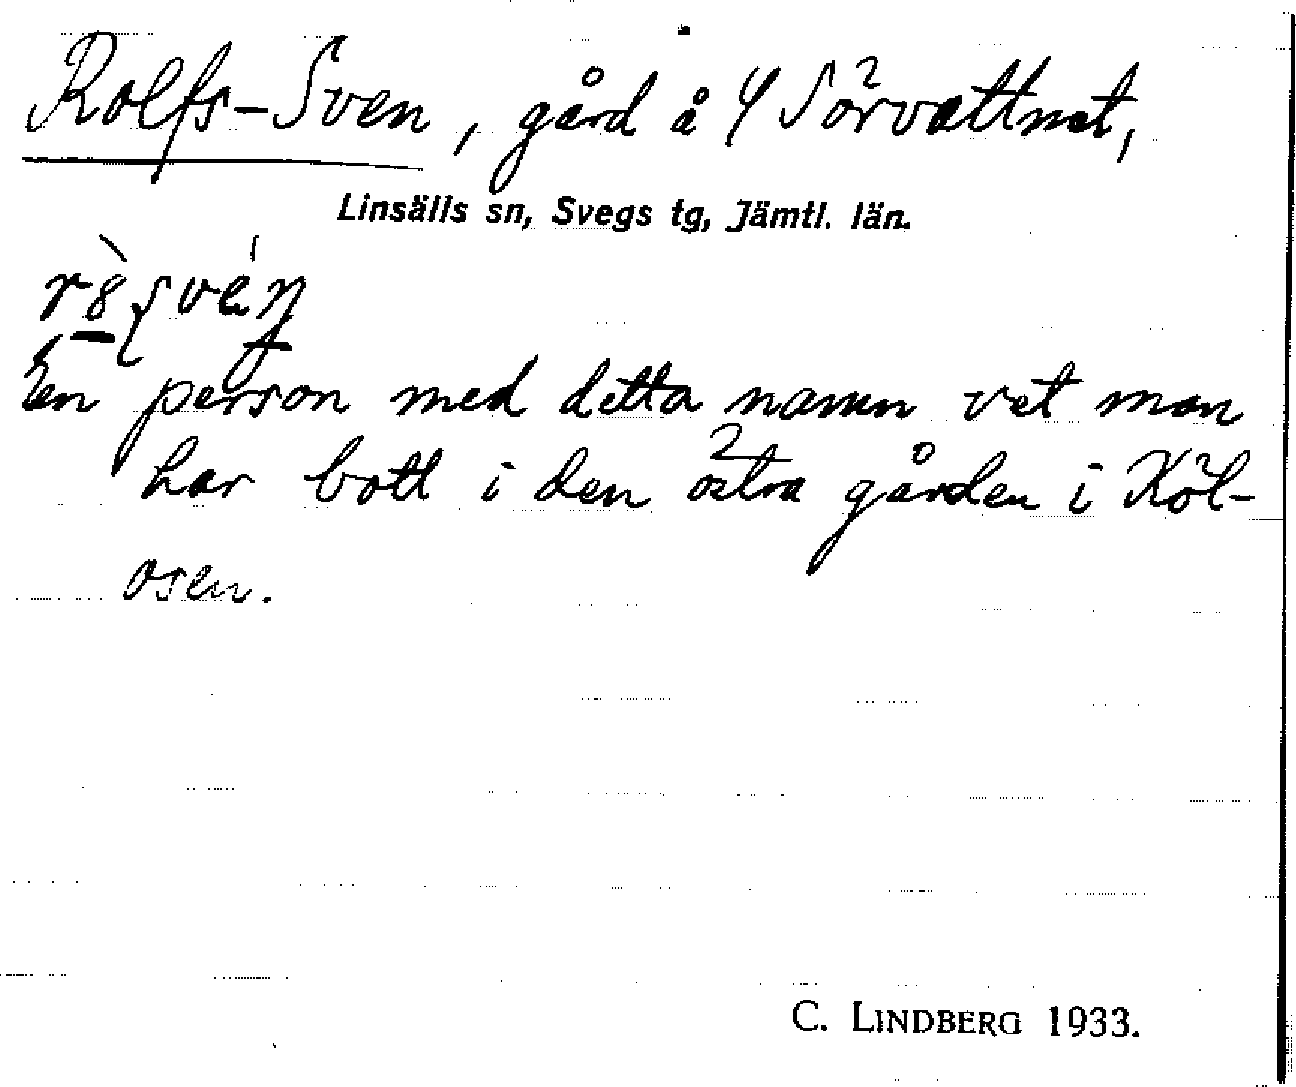 Rolfs-Sven, gård å 4 Sörvattnet,
Linsälls sn, Svegs tg, Jämtl. län.
En person med detta namn vet man
har bott i den östra gården i Köl-
osen.
C. LINDBERG 1933.